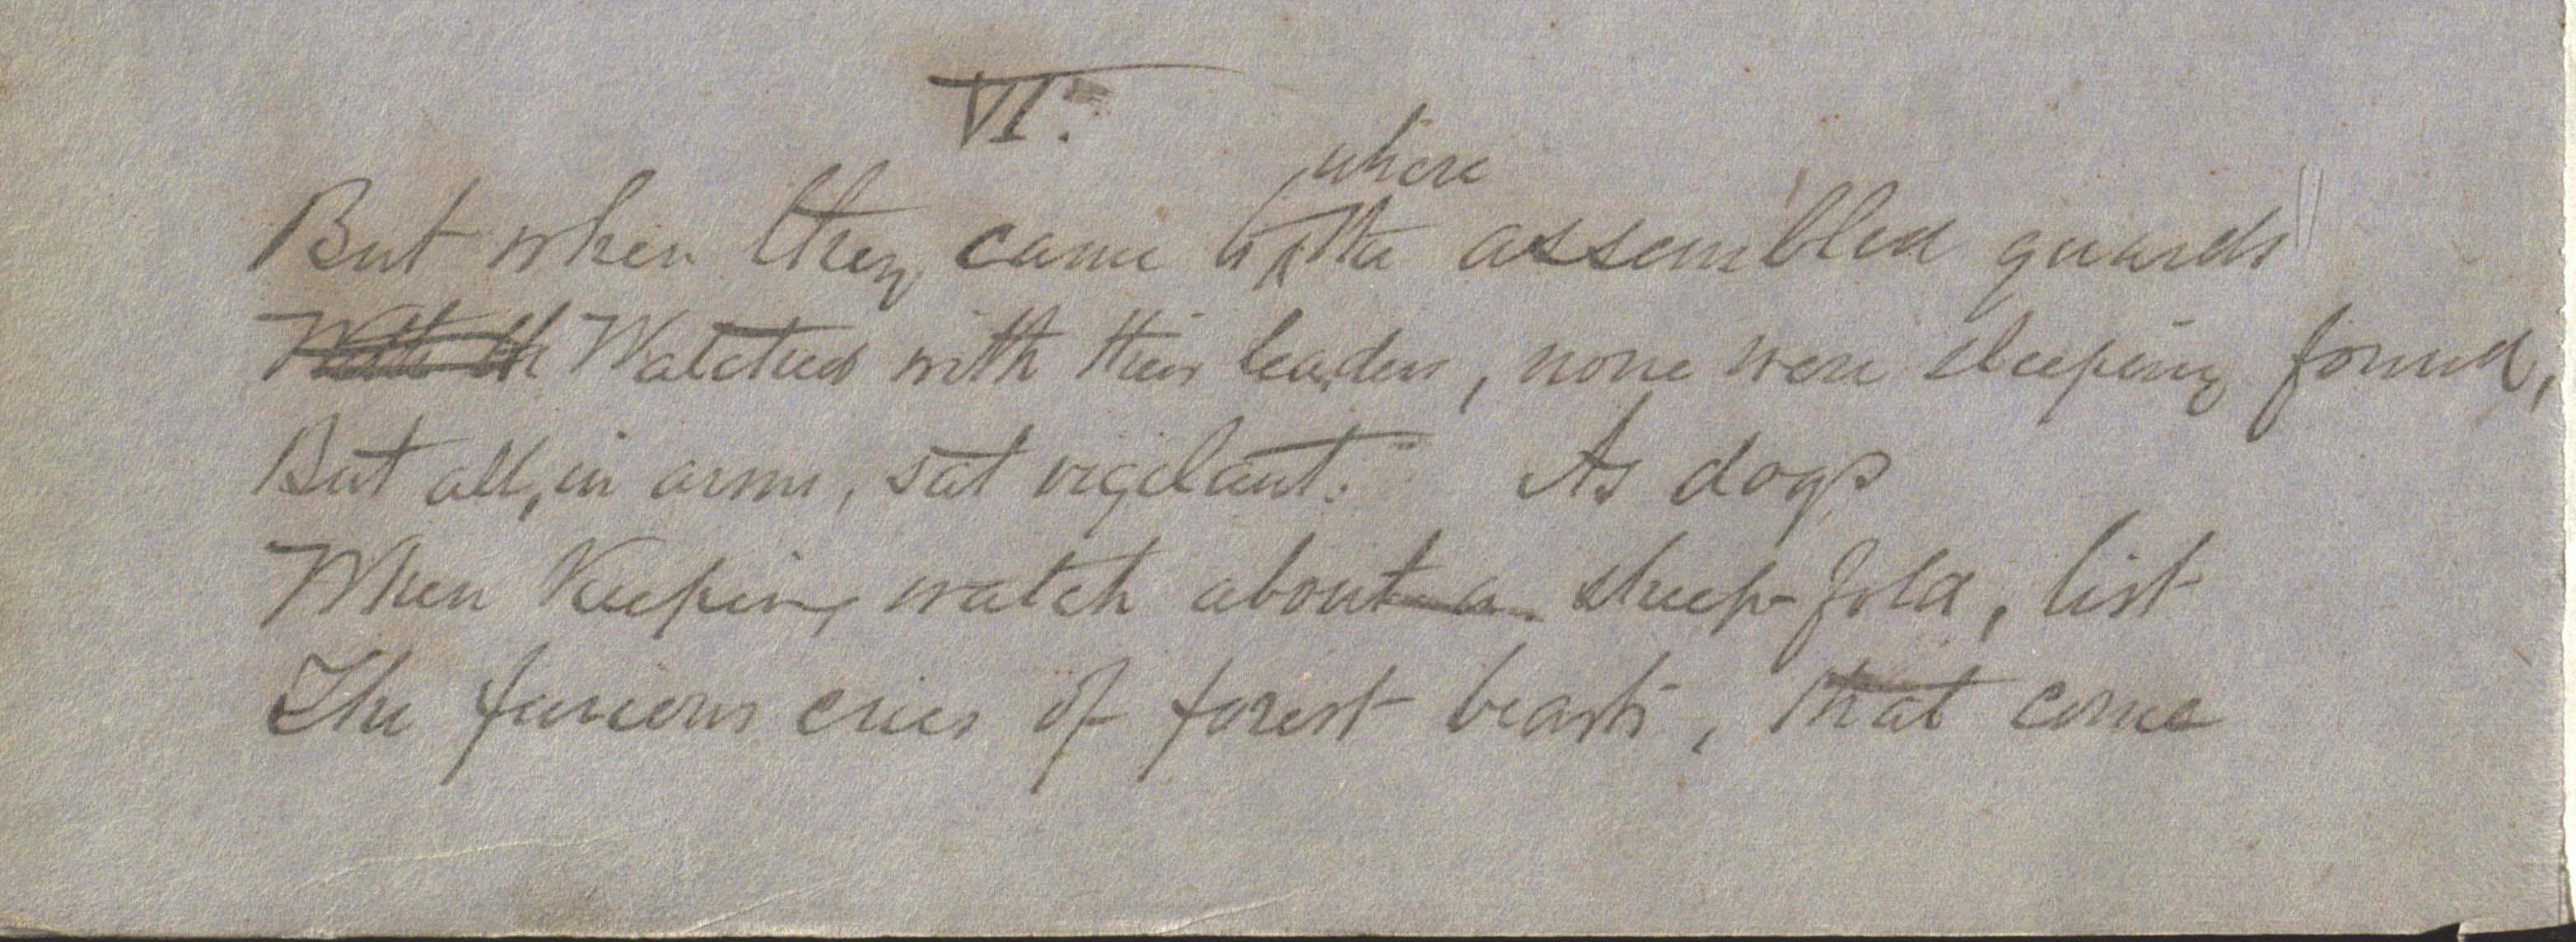 VI.
But when they came to where the assembled guards
With th Watched with their leaders, none were sleeping found,
But all, in arms, sat vigilant. As dogs
When keeping watch about a sheep-fold, list
The furious cries of forest beasts, that come